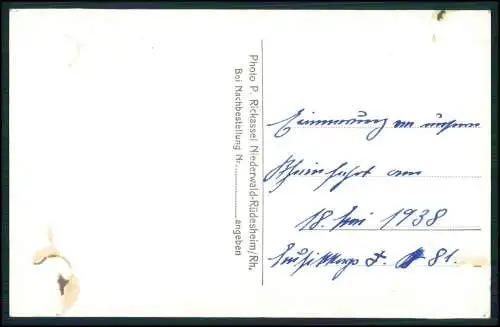 Photo P. Rickassel Niederwald-Rüdesheim/Rh.
Bei Nachbestellung Nr. ............ angeben
Erinnerung an unsere
Rheinfahrt am
18. 1938
81.